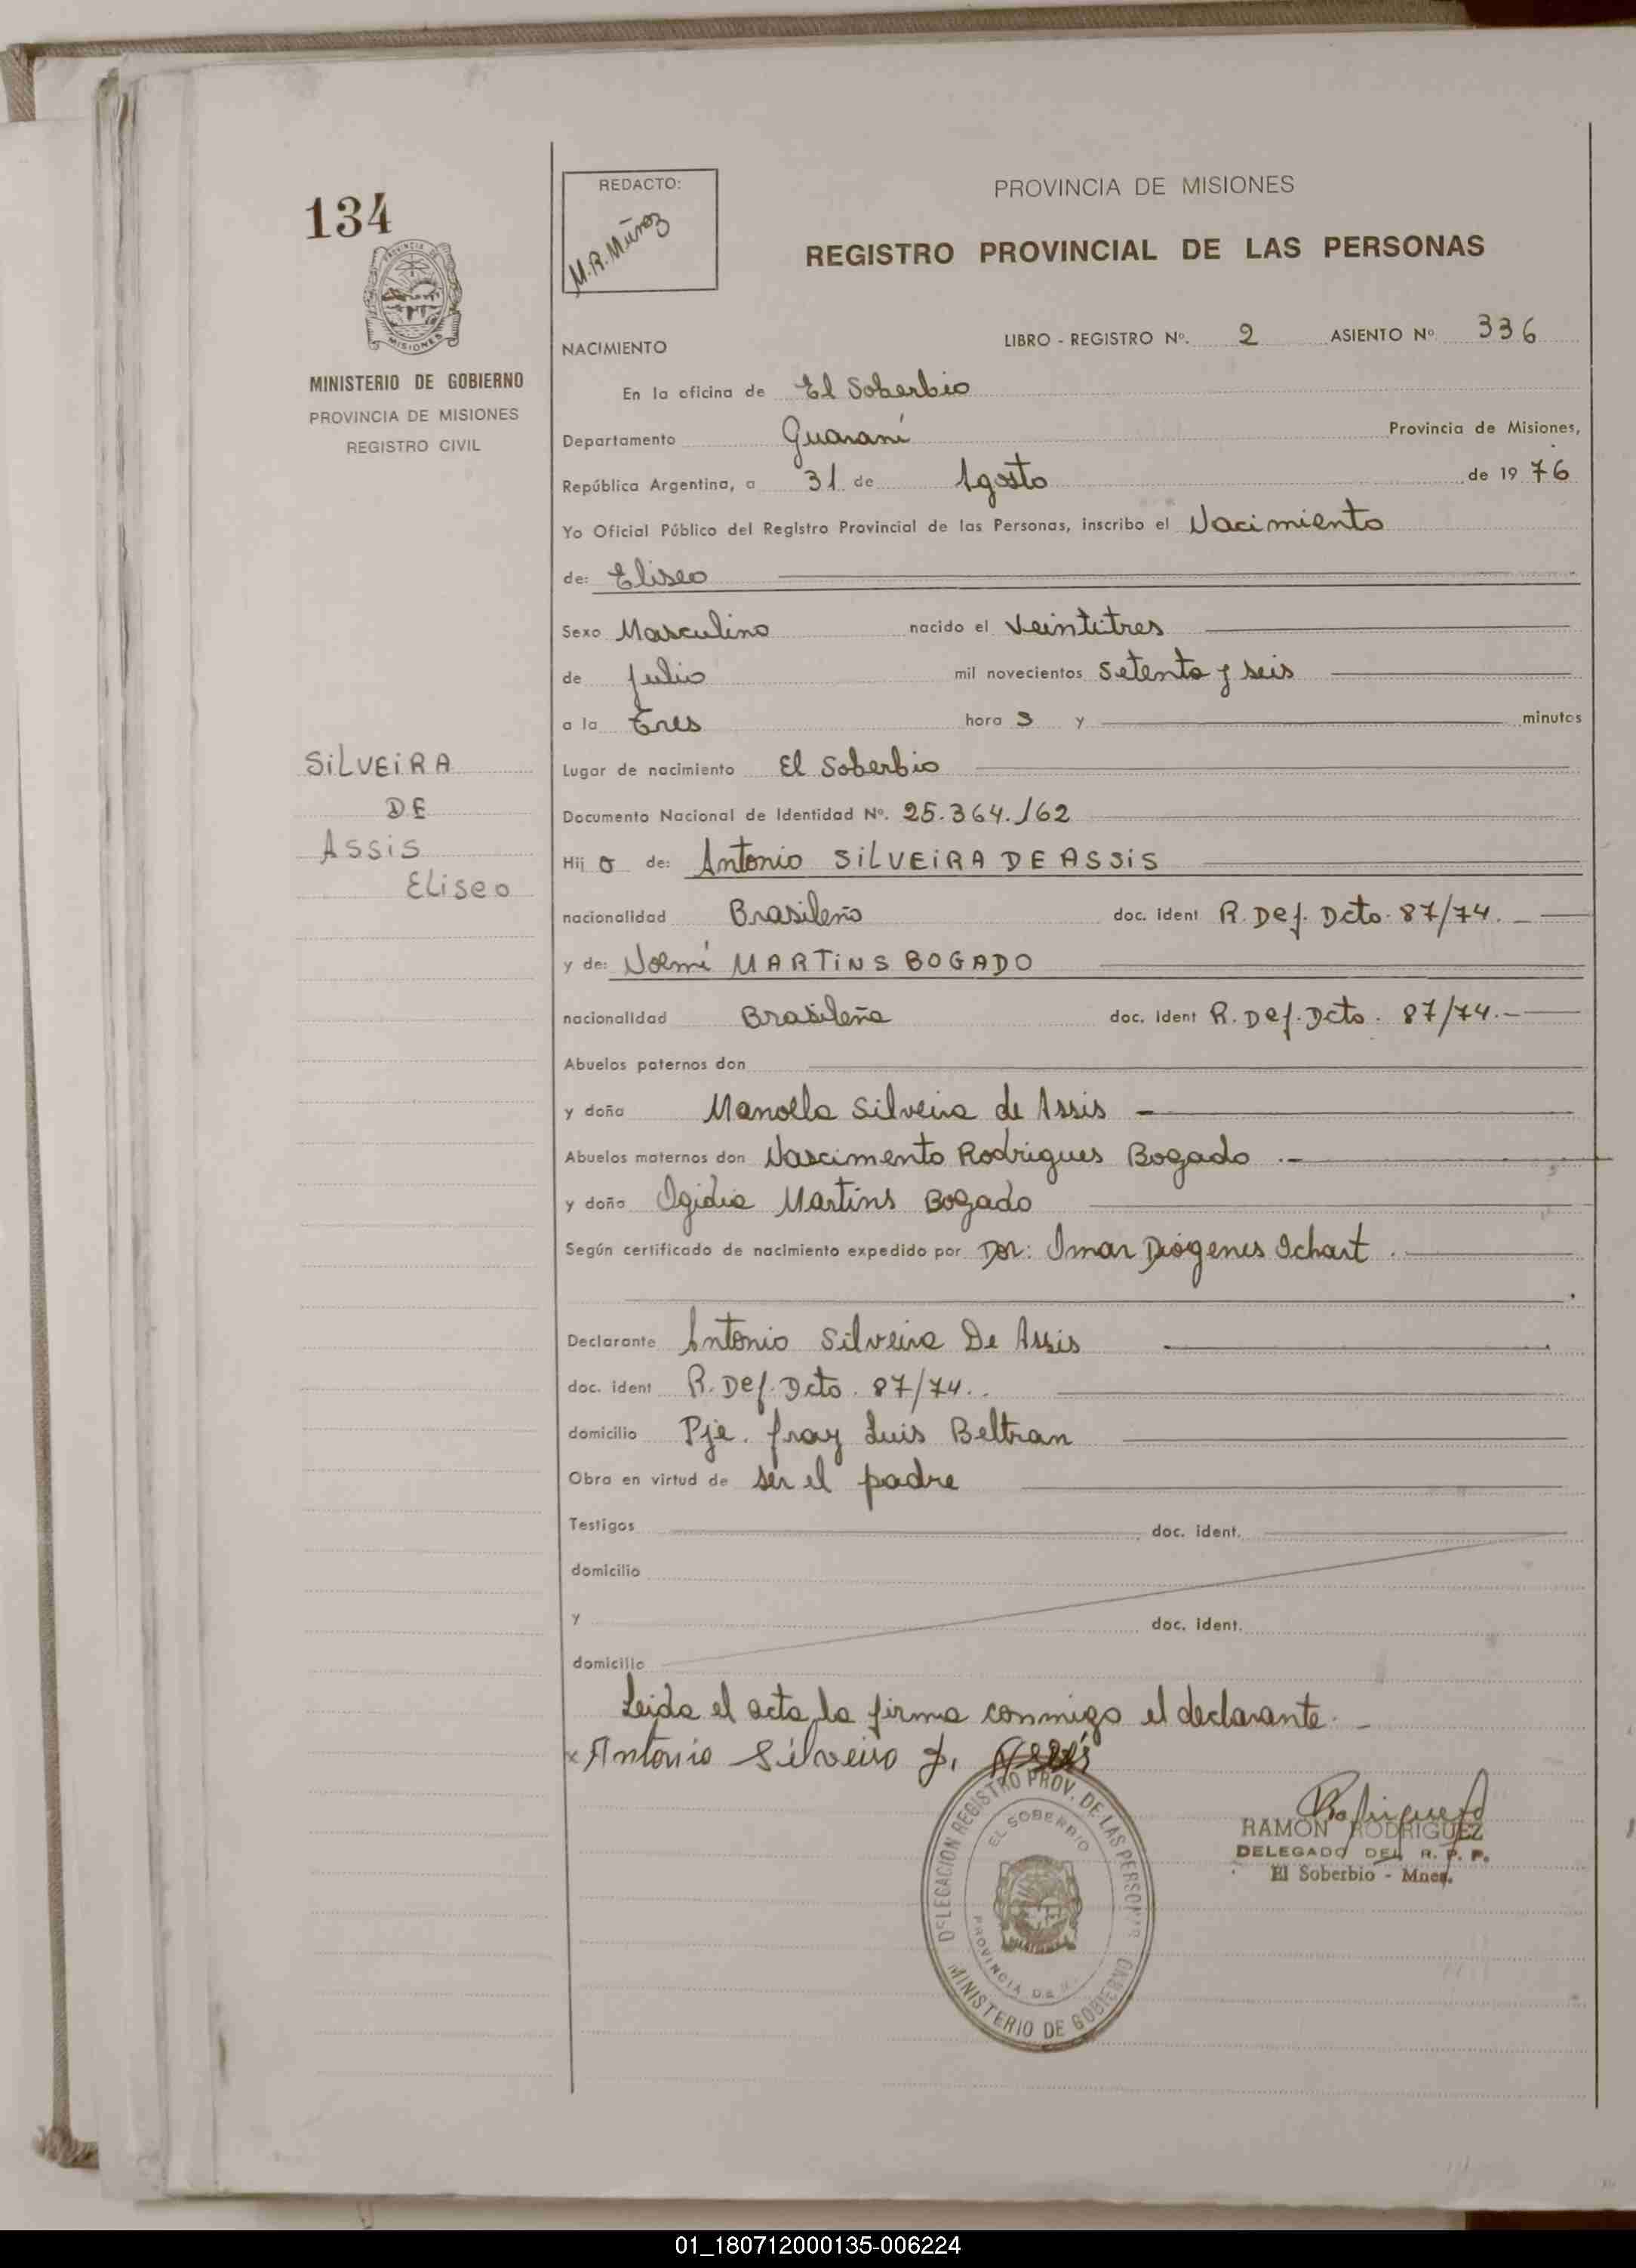 134
PROVINCIA DE
MISIONES
MINISTERIO DE GOBIERNO
PROVINCIA DE MISIONES
REGISTRO CIVIL
SILVEIRA
DE
ASSIS
ELiseo
REDACTO:
M.R.Muñoz
PROVINCIA DE MISIONES
REGISTRO PROVINCIAL DE LAS PERSONAS
NACIMIENTO LIBRO - REGISTRO Nº. 2 ASIENTO Nº 336
En la oficina de El Soberbio
Departamento Guaraní Provincia de Misiones,
República Argentina, a 31 de Agosto de 19 76
Yo Oficial Público del Registro Provincial de las Personas, inscribo el Nacimiento
de: Eliseo
Sexo Masculino nacido el Veintitres
de Julio mil novecientos Setenta y seis
a la Tres hora 3 y minutos
Lugar de nacimiento El Soberbio
Documento Nacional de Identidad Nº. 25.364.162
Hij o de: Antonio SILVEIRA DE ASSIS
nacionalidad Brasileño doc. ident R. Def. Dcto. 87/74.
y de: Noemí MARTINS BOGADO
nacionalidad Brasileña doc. ident R. Def. Dcto. 87/74.-
Abuelos paternos don
y doña Manoella Silveira de Assis
Abuelos maternos don Nascimento Rodrigues Bogado .-
y doña Ogidia Martins Bogado
Según certificado de nacimiento expedido por Dor: Omar Diógenes Ichart .
Declarante Antonio Silveira De Assis
doc. ident R. Def. Dcto. 87/74..
domicilio Pje. fray Luis Beltran
Obra en virtud de ser el padre
Testigos doc. ident.
domicilio
y doc. ident.
domicilio
Leida el acta, la firma conmigo el declarante.-
x Antonio Silveiro
DELEGACION REGISTRO PROV. DE LAS PERSONAS
EL SOBERBIO
PROVINCIA DE
MINISTERIO DE GOBIERNO
RAMON RODRIGUEZ
DELEGADO DEL R. P. P.
El Soberbio - Mnes.
01_180712000135-006224